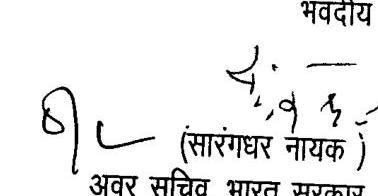 भवदीय
(सारंगधर नायक)
अवर सचिव, भारत सरकार